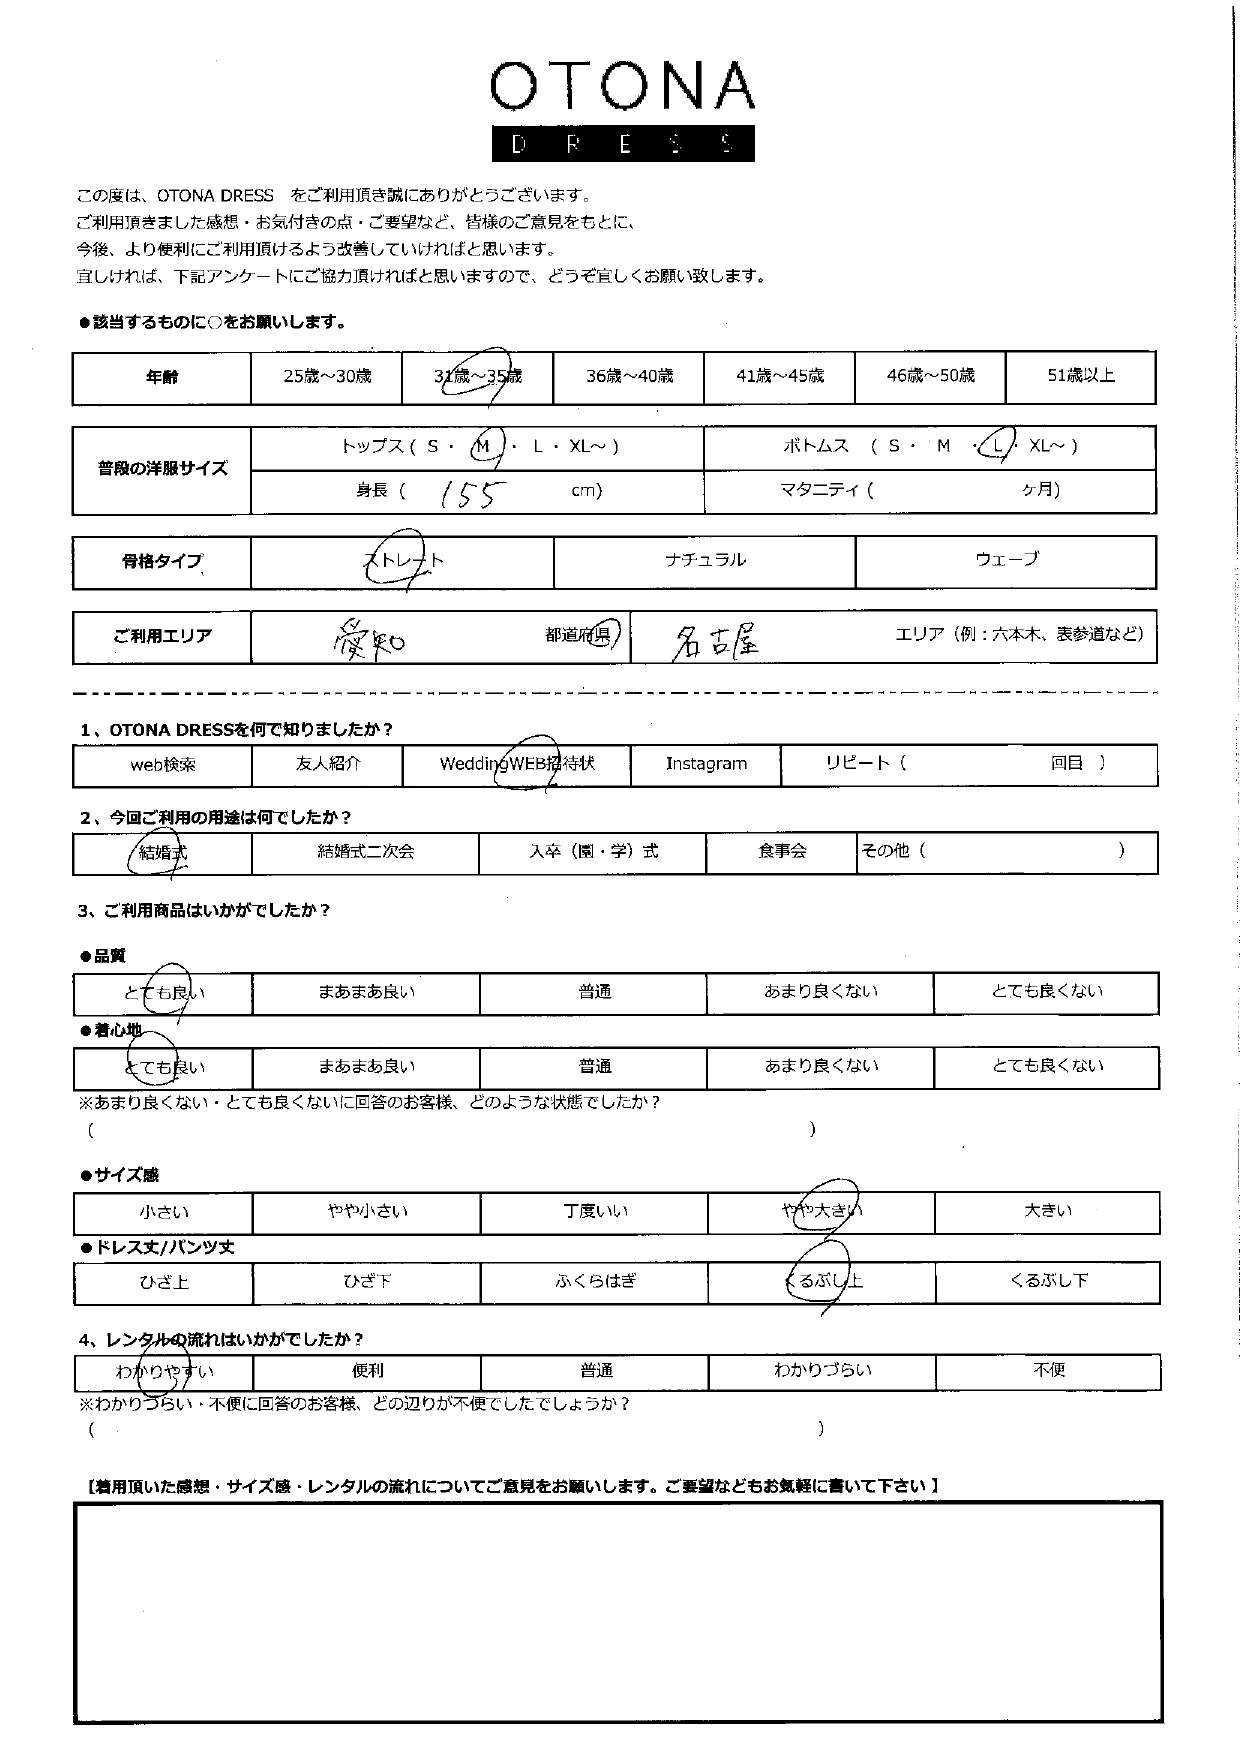 OTONA
DRESS
この度は、OTONA DRESS　をご利用頂き誠にありがとうございます。
ご利用頂きました感想・お気付きの点・ご要望など、皆様のご意見をもとに、
今後、より便利にご利用頂けるよう改善していければと思います。
宜しければ、下記アンケートにご協力頂ければと思いますので、どうぞ宜しくお願い致します。
●該当するものに○をお願いします。
年齢 25歳～30歳 31歳～35歳 36歳～40歳 41歳～45歳 46歳～50歳 51歳以上
普段の洋服サイズ トップス ( S ・ M ・ L ・ XL～ ) ボトムス ( S ・ M ・ L ・ XL～ )
身長 ( 155 cm) マタニティ ( ヶ月)
骨格タイプ ストレート ナチュラル ウェーブ
ご利用エリア 愛知 都道府県 名古屋 エリア（例：六本木、表参道など）
1、OTONA DRESSを何で知りましたか？
web検索 友人紹介 WeddingWEB招待状 Instagram リピート（ 回目 ）
2、今回ご利用の用途は何でしたか？
結婚式 結婚式二次会 入卒（園・学）式 食事会 その他（ ）
3、ご利用商品はいかがでしたか？
●品質
とても良い まあまあ良い 普通 あまり良くない とても良くない
●着心地
とても良い まあまあ良い 普通 あまり良くない とても良くない
※あまり良くない・とても良くないに回答のお客様、どのような状態でしたか？
( )
●サイズ感
小さい やや小さい 丁度いい やや大きい 大きい
●ドレス丈/パンツ丈
ひざ上 ひざ下 ふくらはぎ くるぶし上 くるぶし下
4、レンタルの流れはいかがでしたか？
わかりやすい 便利 普通 わかりづらい 不便
※わかりづらい・不便に回答のお客様、どの辺りが不便でしたでしょうか？
( )
【着用頂いた感想・サイズ感・レンタルの流れについてご意見をお願いします。ご要望などもお気軽に書いて下さい 】